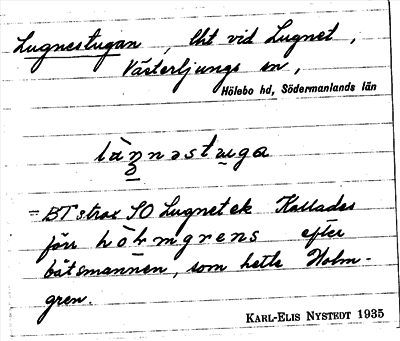 Lugnestugan, lht vid Lugnet,
Västerljungs sn,
Hölebo hd, Södermanlands län
= BT strax SO Lugnet ek Kallades
förr hòlmgrens efter
båtsmannen, som hette Holm-
gren.
KARL-ELIS NYSTEDT 1935